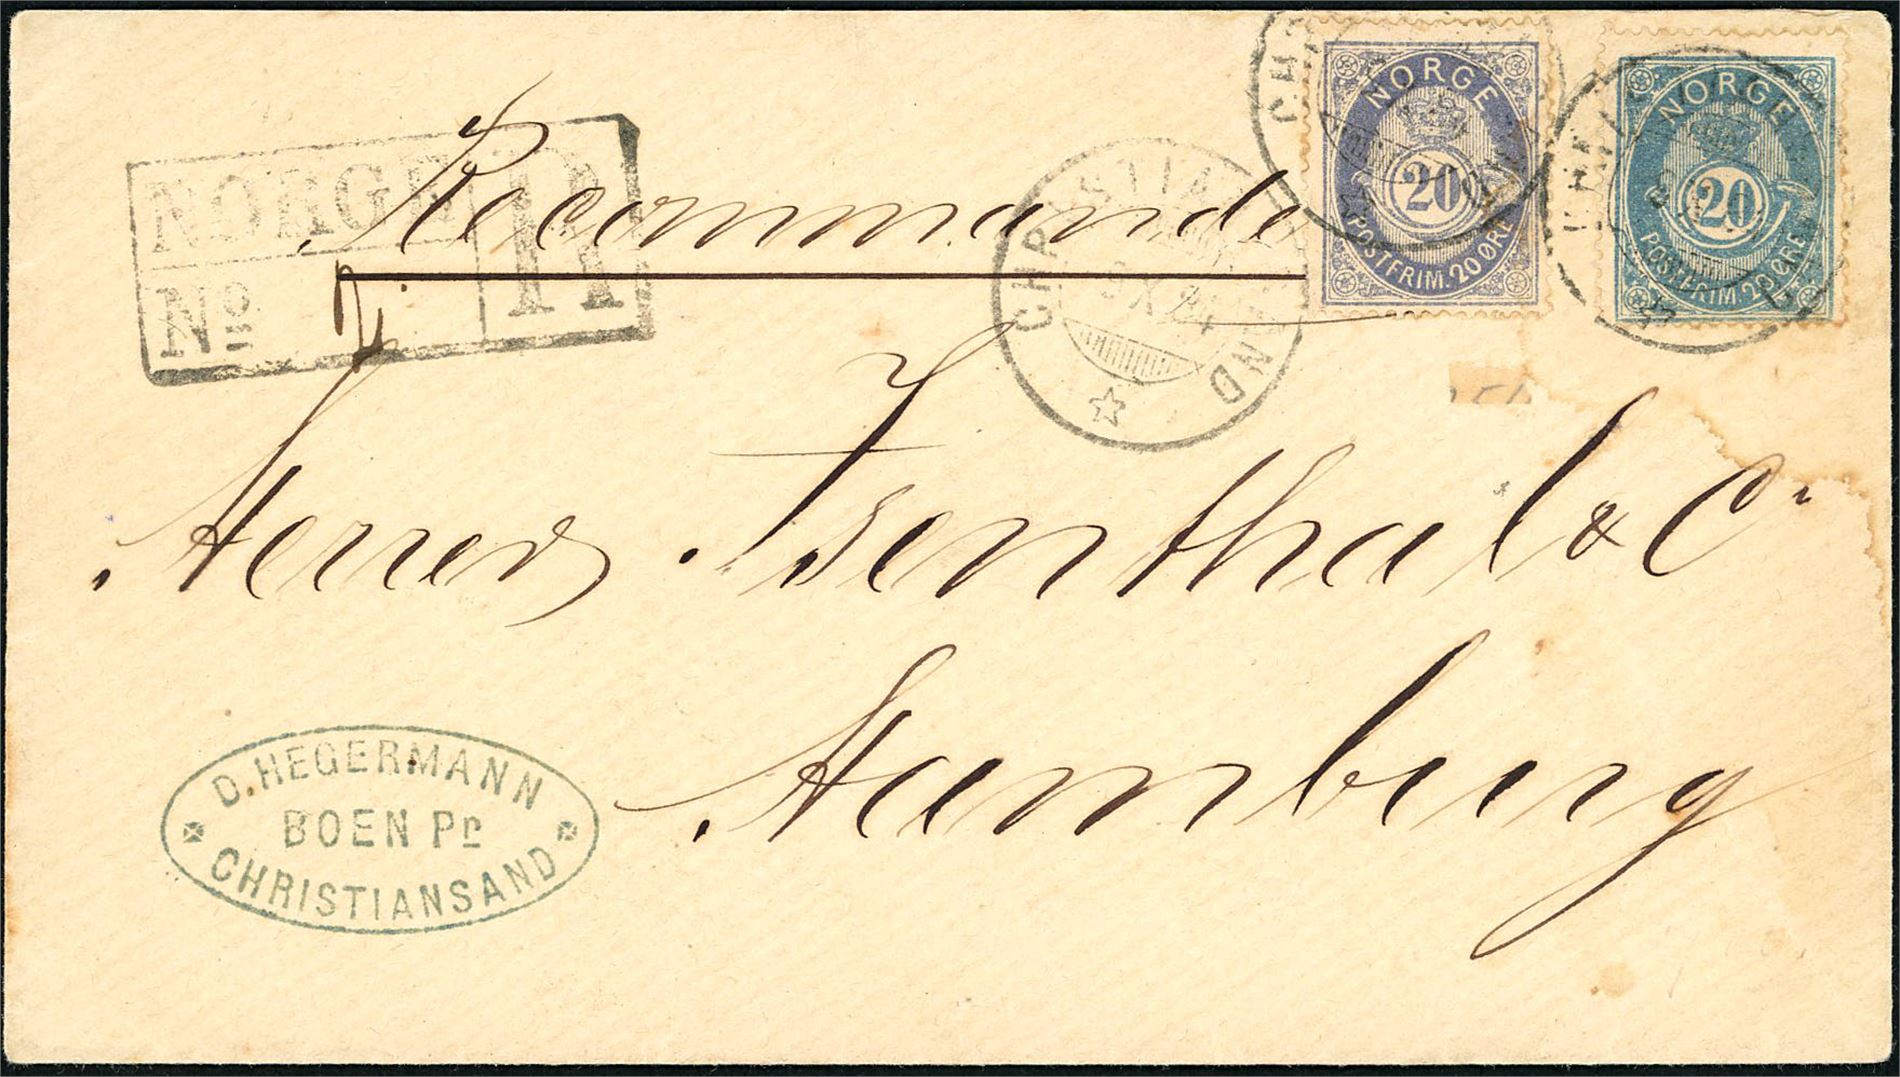 NORGE R
Nº 2
Recommande
CHRISTIANSAND
NORGE
20
POSTFRIM. 20 ØRE
NORGE
20
POSTFRIM. 20 ØRE
Herrer Isenthal & Co
Hamburg
D. HEGERMANN
BOEN Pr
CHRISTIANSAND